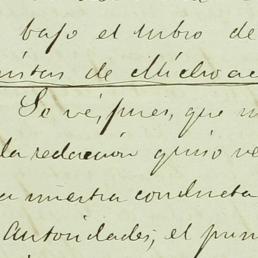 bajo el rubro de
istas de Michoac
Lo vé, pues, que
la redacción quiso ve
a nuestra conducta
Autoridades, el pun